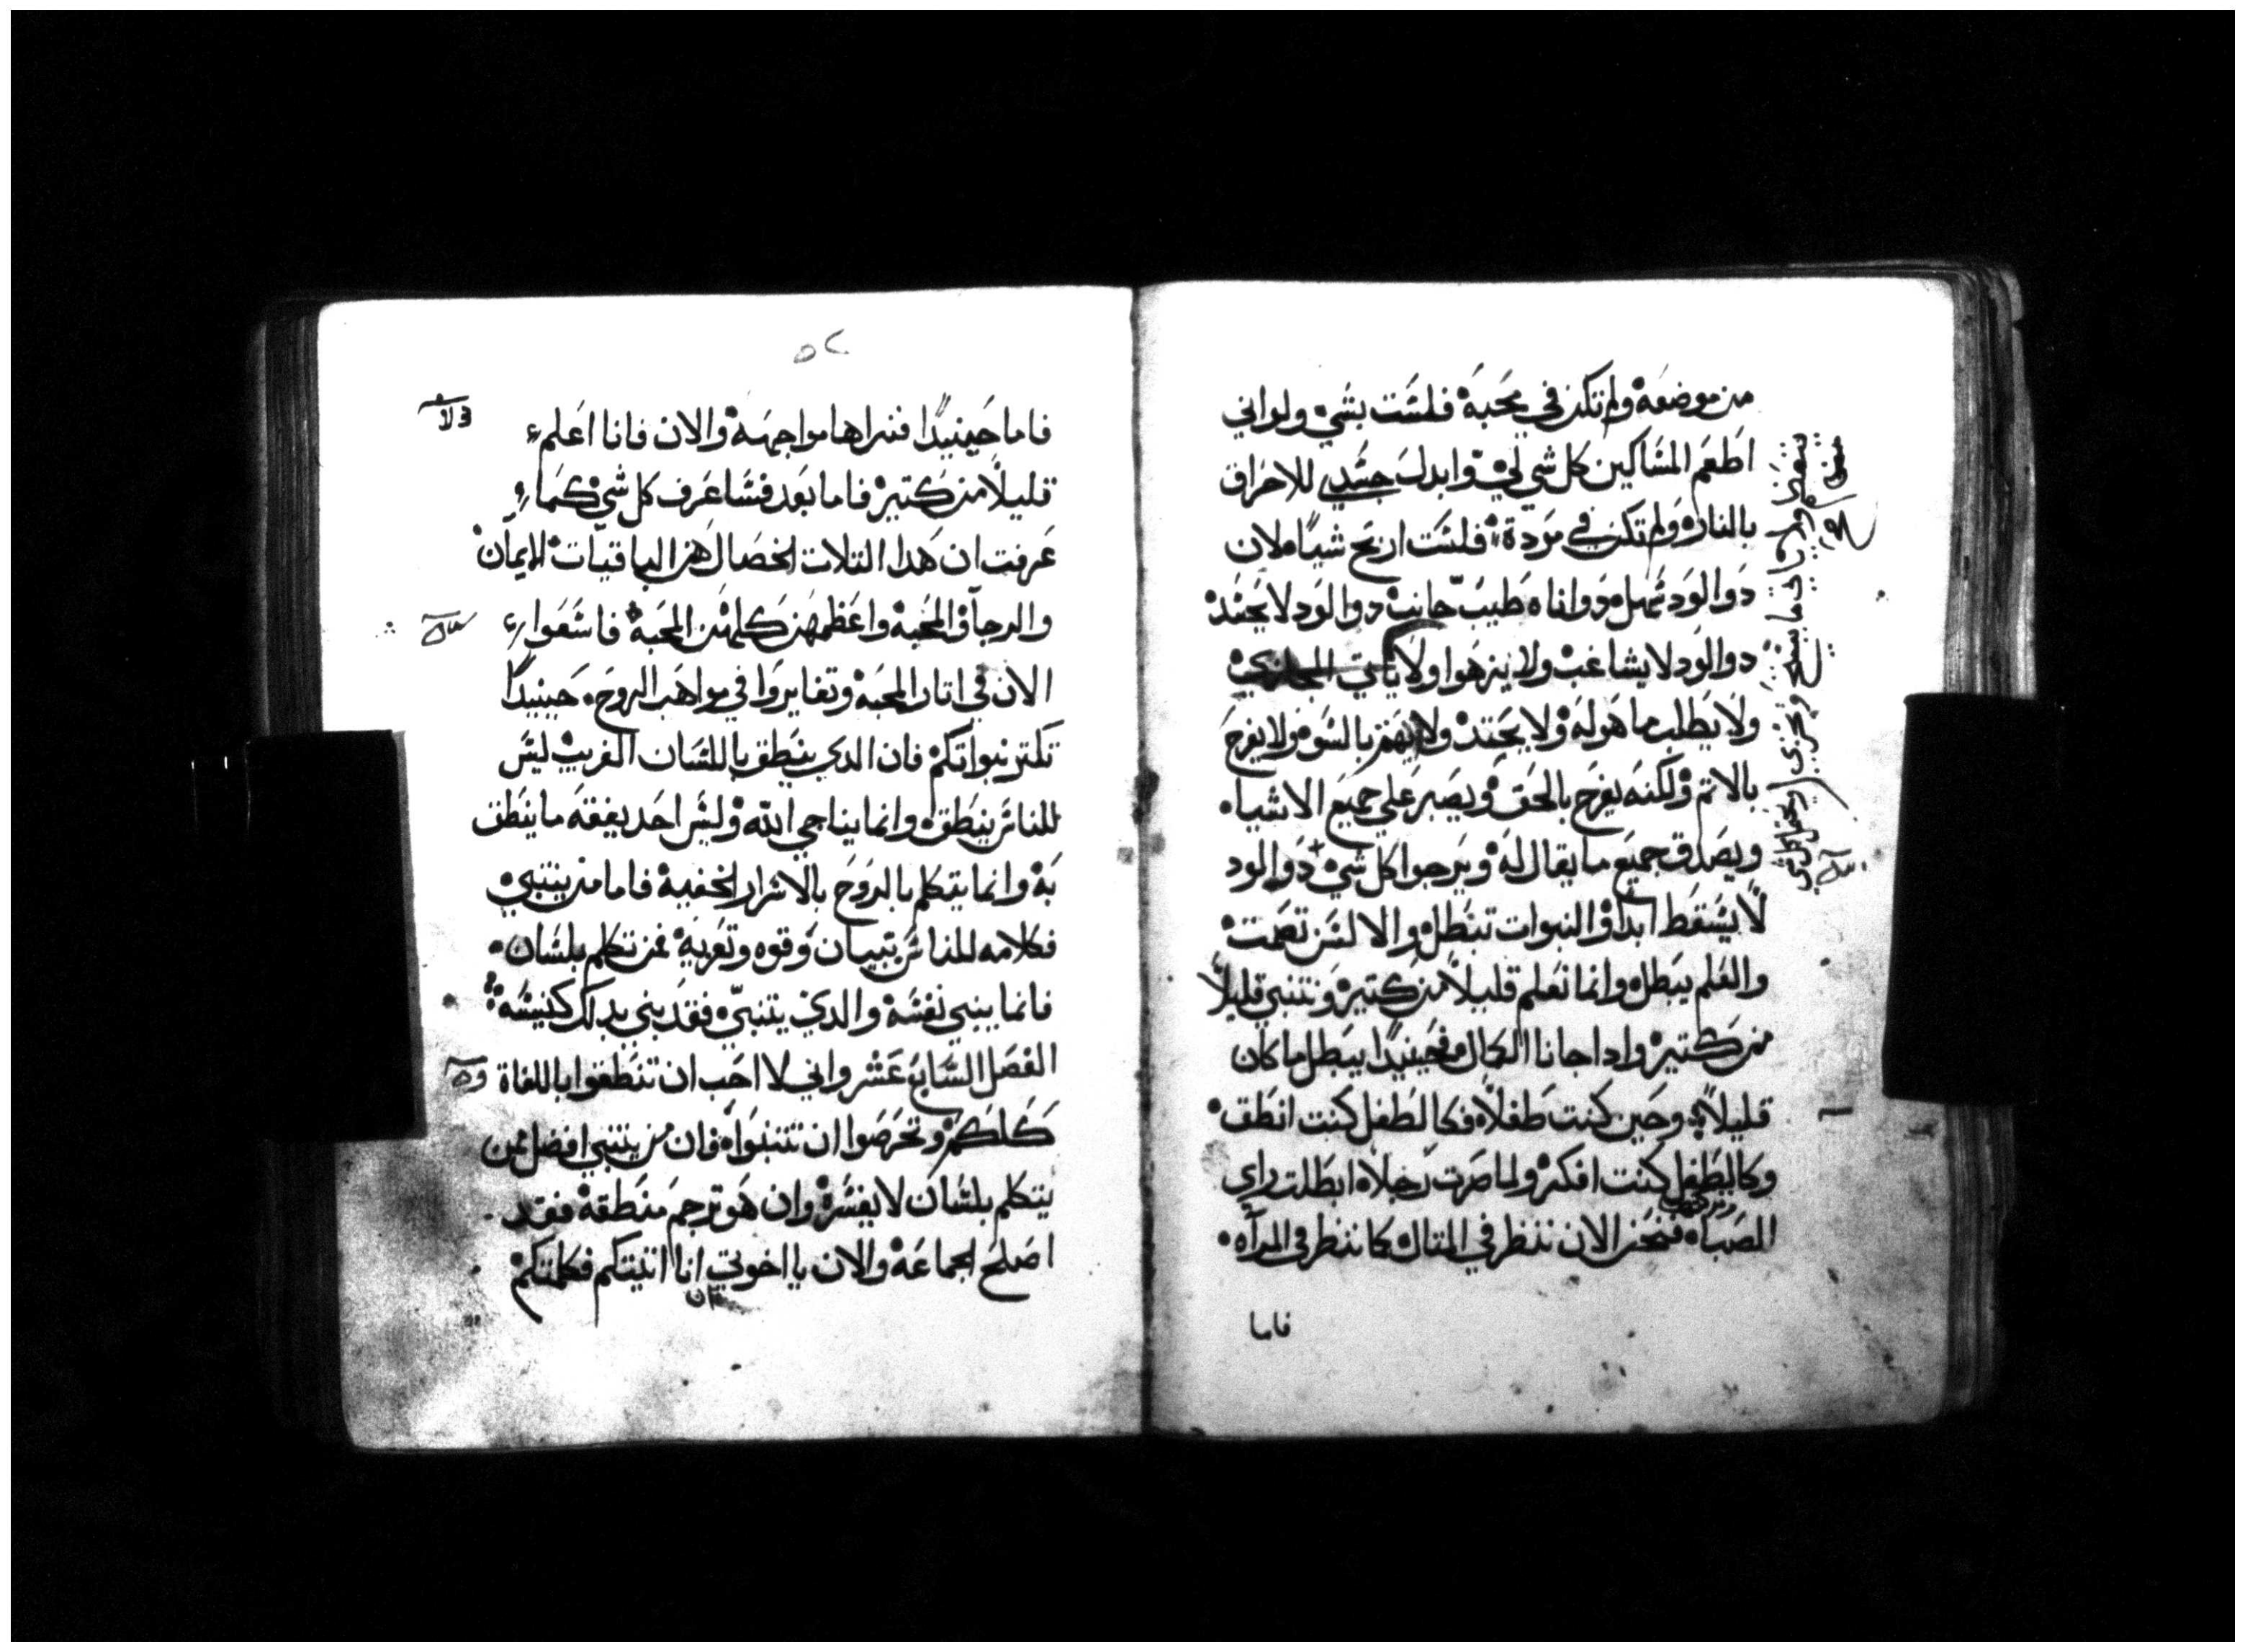 من موضعه ولم تكن في محبة فلست بشي ولو اني
اطعم المساكين كل شي لي وابدل جسدي للاحراق
بالنار ولم تكن في مودة فلست اربح شيا لان
دوا الود تمهل دوا اناه طيب جانب دوا الود لا يحسد
دوا الود لا يشاغب ولا يزهوا ولا ياتي
ولا يطلب ما هو له ولا يحتد ولا يهتم بالسو ولا يفرح
بالاتم ولكنه يفرح بالحق ويصبر علي جميع الاشيا
ويصدق جميع ما يقال له ويرجوا كل شي دوا الود
لا يسقط ابدا والنبوات تبطل والالسن تصمت
والعلم يبطل وانما نعلم قليلا من كتير ونتنبي قليلا
من كتير وادا جانا الكمال فحينيدا يبطل ما كان
قليلا وحين كنت طفلا فكالطفل كنت انطق
وكالطفل كنت افكر ولما صرت رجلا ابطلت راي
الصبا فنحن الان ننظر في المتال كما ننظر في المراه
فاما
فاما حينيدا فنراها مواجهة والان فانا اعلم
قليلا من كتير فاما بعد فساعرف كل شي كما
عرفت ان هدا التلات الخصال هن الباقيات الايمان
والرجا والمحبة واعظمهن كلهن المحبة فاسعوا
الان في اتار المحبة وتغايروا في مواهب الروح حينيدا
تكتر نبواتكم فان الدي ينطق باللسان الغريب ليس
للناس ينطق وانما يناجي الله وليس احد يفقه ما ينطق
به وانما يتكلم بالروح بالاسرار الخفية فاما من يتنبي
فكلامه للناس تبيان وقوه وتعزية فمن تكلم بلسان
فانما يبني نفسه والدي يتنبي فقد بني بدلك كنيسه
الفصل السابع عشر واني لا احب ان تنطقوا باللغاة
كلكم وتحرصوا ان تتنبوا فان من يتنبي افضل ممن
يتكلم بلسان لا يفسر وان هو ترجم منطقة فقد
اصلح الجماعة والان يا اخوتي انا اتيتكم فكلمتكم